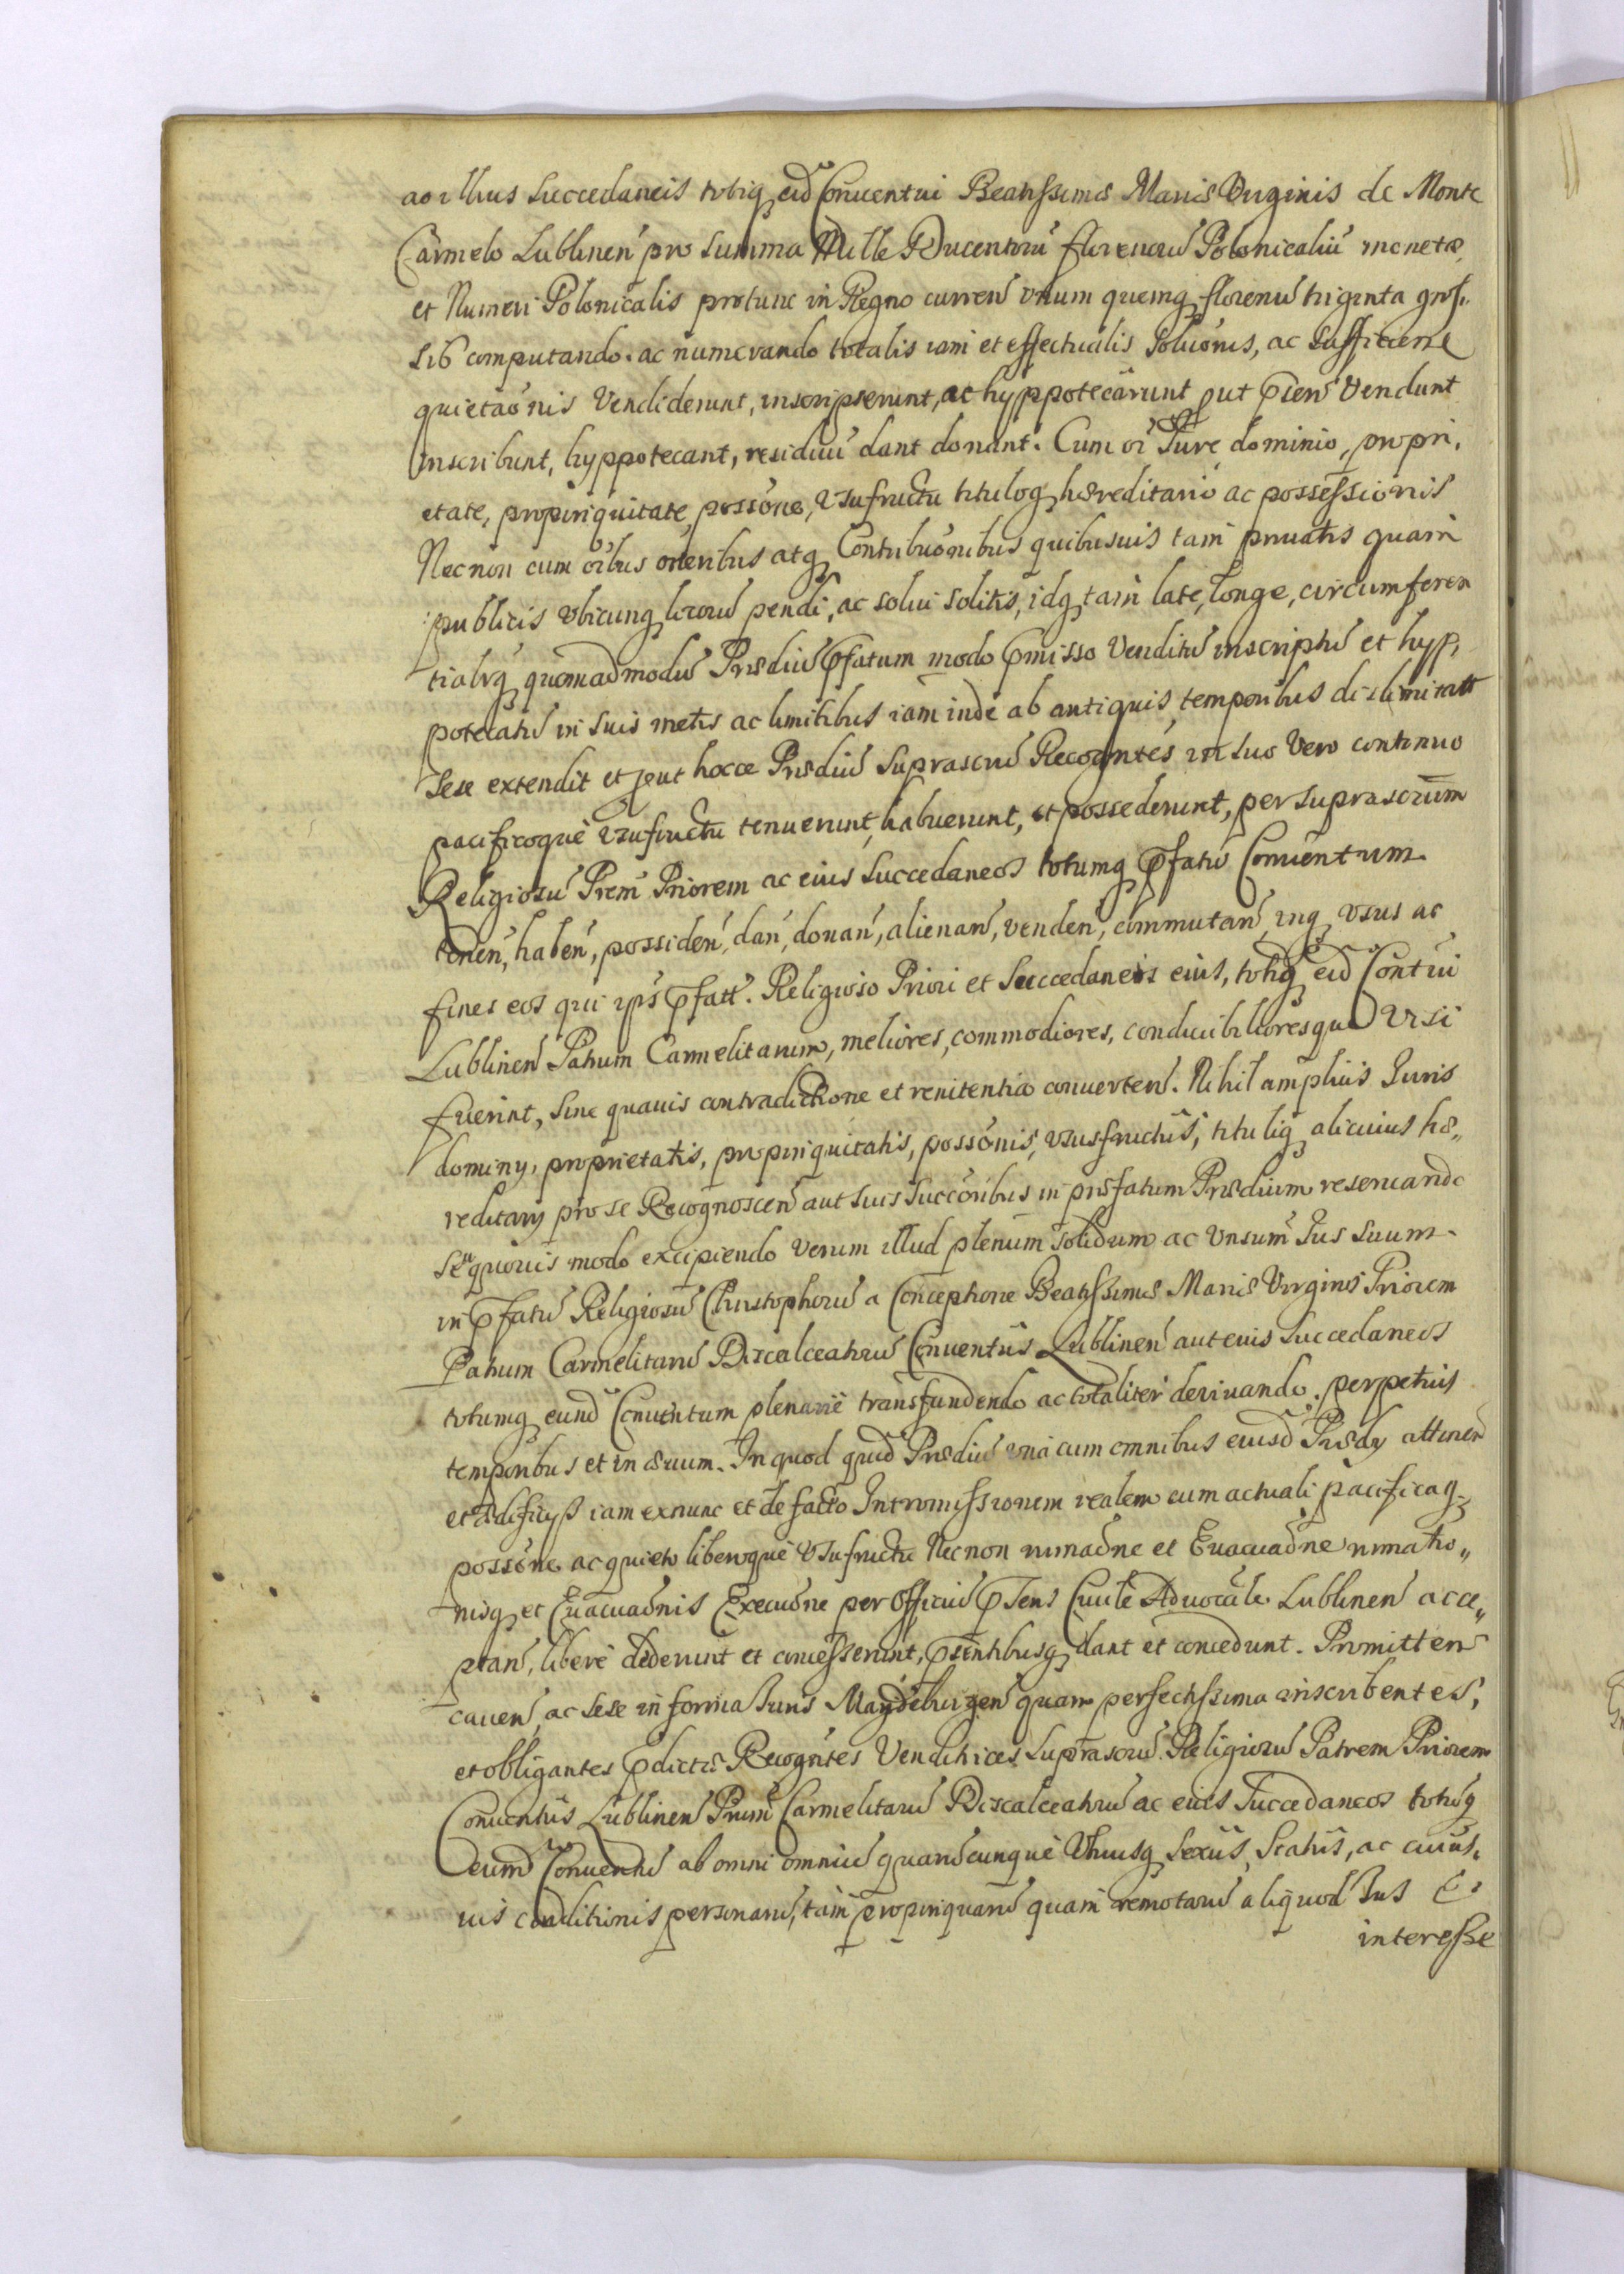 ac illius Succedaneis totiq̃ eid Conuentui Beatissimæ Mariæ Virginis de Monte
Carmelo Lublinen̄ pro Summa Mille Ducentorū florenorū Polonicaliū monetæ
et Numeri Polonicalis protunc in Regno curren̄ vnum quemq̃ florenū triginta gros,
sib computando. ac numerando totalis iam et effectualis Soluõnis, ac Sufficienti
quietaõnis Vendiderunt, inscripserunt, ac hyppotecârunt put p̄ sen̄ Vendunt
inscribunt, hyppotecant, residuū dant donant. Cum oi Jure dominio, propri,
etate, propinquitate, possõne, Vsufructu tituloq̃ hæreditario ac possessionis
Necnon cum oībus oneribus atq̃ Contribuõnibus quibusuis tam priuatis quam
publicis vbicunq̃ locorū pendi, ac solui solitis, idq̃ tam late, longe, circumferen
tialrq̃ quemadmodū Prædiū p̄fatum modo p̄misso Venditū inscriptū et hyp,
potecatū in suis metis ac limitibus iam inde ab antiquis temporibus delimitatt
Sese extendit et put hocce Prædiū Suprascrū Recogntēs in suo Vero continuo
pacificoquè vsufructu tenuerunt, habuerunt, et possederunt, per suprascrūm
Religiosū Prem̄ Priorem ac eius Succedaneos totumq̃ p̄fatū Conuentum
tenen̄, haben̄, possiden̄, dan̄, donan̄, alienan̄, venden̄, commutan̄, inq̃ vsus ac
fines eos qui ips̄ p̄fatt. Religioso Priori et Succedaneis eius, totiq̃ eid Contui
Lublinen̄ Patrum Carmelitarum, meliores, commodiores, conducibilioresque visi
fuerint, sine quauis contradictione et renitentia conuerten̄. Nihil amplius Juris
dominy, proprietatis, propinquitatis, possõnis, vsusfructûs, tituliq̃ alicuius hæ„
reditary pro se Recognoscen̄ aut suis succõribus in præfatum Prædium reseruando
Seu quouis modo excipiendo Verum illud plenum solidum ac Vnsum̄ Jus Suum
in p̄fatū Religiosū Christophorū a Conceptione Beatissimæ Mariæ Virginis Priorem
Patrum Carmelitarū Discalceatorū Conuentûs Lublinen̄ aut euis Succedaneos
totumq̃ eund̄ Conuentum plenariè transfundendo ac totaliter deriuando. perpetuis
temporibus et in æuum. In quod quid̄ Prædiū vnà cum omnibus eiusd̄ Prædy attinen̄
et ædificyß iam exnunc et de facto Intromissionem realem cum actuali pacificaq̃
possõne ac quieto liberoquè Vsufructu Necnon rumaõne et Euacuaõne rumatio„
nisq̃ et Euacuaõnis Execuõne per Officiū p̄sens Ciuile Aduocāle Lublinen̄ acce„
ptan̄, liberè dederunt et concesserunt, p̄sentibusq̃ dant et concedunt. Promitten̄
cauen̄, ac sese in forma Juris Maydeburgen̄ quam perfectissima inscribentes,
et obligantes p̄dictæ Recogntēs Venditrices Suprascrū Religiosū Patrem Priorem
Conuentûs Lublinen̄ Prum̄ Carmelitarū Discalceatorū ac eius Succedaneos totūq̃
eund̄ Conuentū ab omni omniū quarūcunquè Vtriusq̃ Sexûs, Statûs, ac cuius,
uis conditionis personarū, tam propinquarū quam remotarū aliquod Jus &
interesse